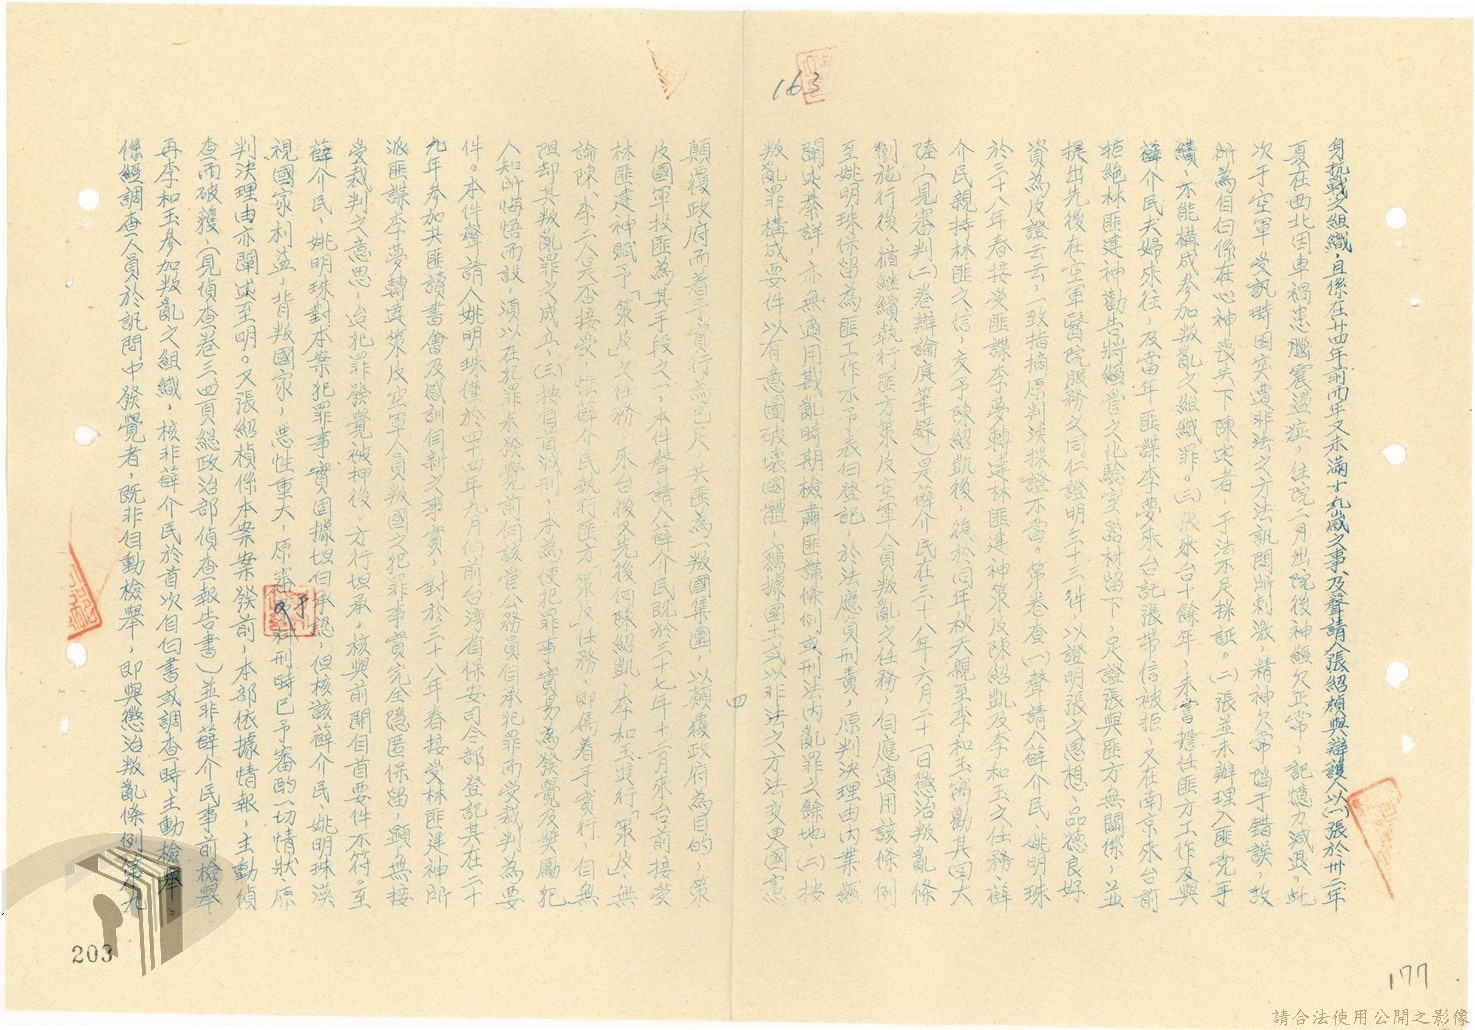 身抗戰之組織，且係在廿四年前而年又未滿十九歲之事及聲請人張紹楨與辯護人以(一)張於卅二年
夏在西北因車禍患腦震盪症，住院二月出院後神經欠正常，記憶力減退，此
次于空軍受訊時因突遭非法之方法訊問所刺激，精神欠常陷于錯誤，故
所為自白係在心神喪失下陳述者，于法不足採証。(二)張並未辦理入匪党手
續，亦不能構成參加叛亂之組織罪。(三)張來台十餘年，未嘗擔任匪方工作及與
薛介民夫婦來往，及當年匪諜李夢來台託張帶信被拒，又在南京來台前
拒絕林匪建神勸告將經管之化驗室器材留下，足證張與匪方無關係，並
提出先後在空軍醫院服務之同仁證明三十三件，以證明張之思想、品德良好
資為反證云云，一致指摘原判決採證不當。第卷查(一)聲請人薛介民、姚明珠
於三十八年春接受匪諜李夢轉達林匪建神策反陳紹凱及李和玉之任務，薛
介民親持林匪之信，交予陳紹凱後，復於同年秋天親至李和玉寓勸其回大
陸(見審判(二)卷辯論庭筆錄)是薛介民在三十八年六月二十一日懲治叛亂條
例施行後，猶繼續執行匪方策反空軍人員叛亂之任務，自應適用該條例
至姚明珠保留為匪工作亦予表白登記，於法應負刑責，原判決理由內業經
闡述綦詳，亦無適用戡亂時期檢肅匪諜條例或刑法內亂罪之餘地，(二)按
叛亂罪構成要件以有意圖破壞國體，竊據國土或以非法之方法變更國憲
四
顛覆政府而着手實行為已足，共匪為一叛國集團，以顛覆政府為目的，策
反國軍投匪為其手段之一，本件聲請人薛介民既於三十七年十二月來台前接受
林匪建神賦予「策反」之任務，來台後又先後向陳紹凱、李和玉進行「策反」，無
論陳、李二人是否接受，惟薛介民執行匪方「策反」任務，即屬着手實行，自無
阻却其叛亂罪之成立，(三)按自首減刑，本為使犯罪事實易為發覺及獎勵犯
人知所悔悟而設，須以在犯罪未發覺前向該管公務員自承犯罪而受裁判為要
件。本件聲請人姚明珠僅於四十四年九月向前台灣省保安司令部登記其在二十
九年參加共匪讀書會及感訓自新之事實，對於三十八年春接受林匪建神所
派匪諜李夢轉達策反空軍人員叛國之犯罪事實完全隱匿保留，顯無接
受裁判之意思，迨犯罪發覺被押後，方行坦承，核與前開自首要件不符。至
薛介民、姚明珠對本案犯罪事實固據坦白承認，但核該薛介民、姚明珠漠
視國家利益，背叛國家，惡性重大，原審科刑時已予審酌一切情狀，原
判決理由亦闡述至明。又張紹楨係本案案發前，本部依據情報，主動偵
查而破獲，(見偵查(一)卷三四頁總政治部偵查報告書)並非薛介民事前檢舉，
再李和玉參加叛亂之組織，核非薛介民於首次自白書或調查時主動檢舉，
係經調查人員於訊問中發覺者，既非自動檢舉，即與懲治叛亂條例第九
163
177
203
請合法使用公開之影像